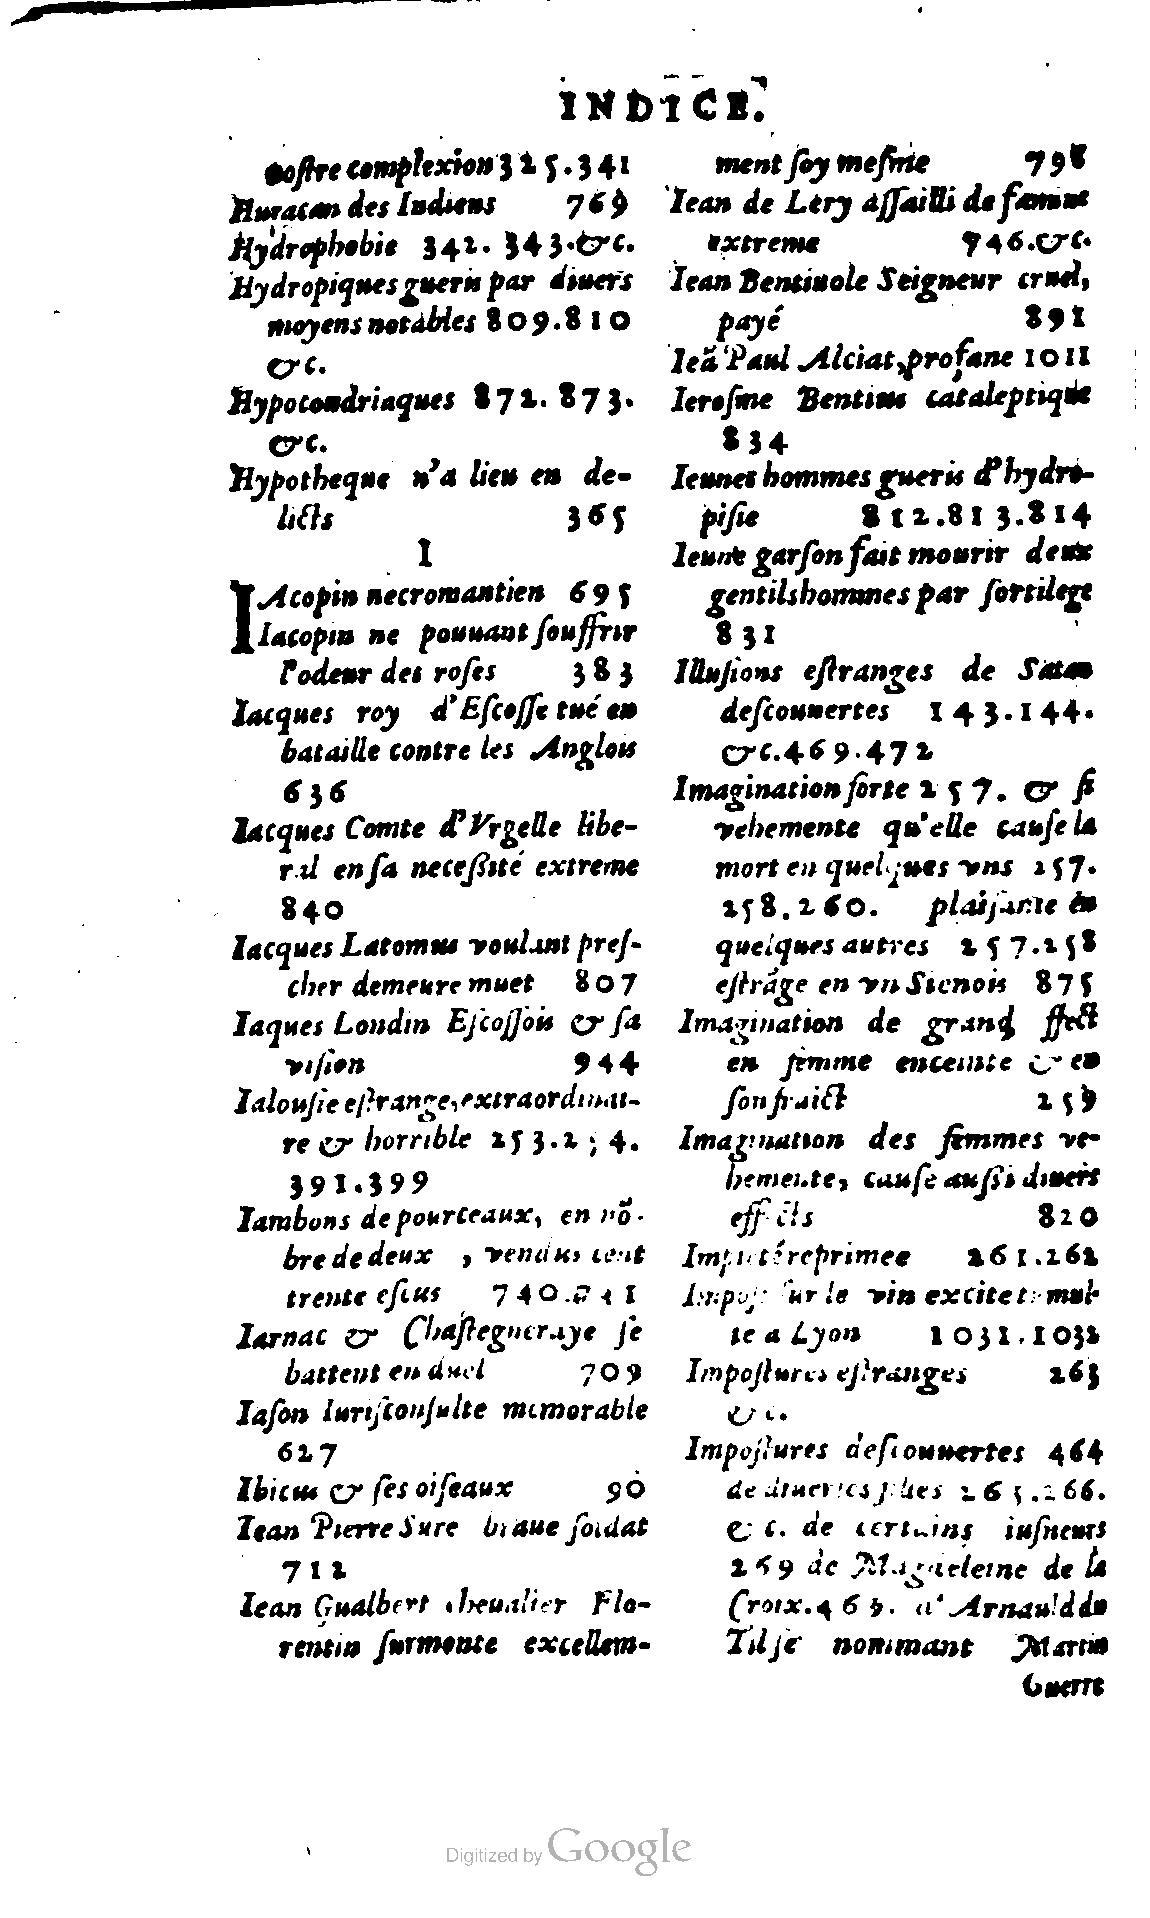 INDICE.
noſtre complexion 325.341
Huracan des Indiens 769
Hydrophobie 342. 343.&c.
Hydropiques gueris par diuers
moyens notables 809.810
&c.
Hypocondriaques 872. 873.
&c.
Hypotheque n'a lieu en de-
licts 365
I
IAcopin necromantien 695
Iacopin ne pouuant ſouffrir
l'odeur des roſes 383
Iacques roy d'Eſcoſſe tué en
bataille contre les Anglois
636
Iacques Comte d'Vrgelle libe-
ral en ſa neceßité extreme
840
Iacques Latomus voulant preſ-
cher demeure muet 807
Iaques Londin Eſcoſſois & ſa
viſion 944
Ialouſie eſtrange, extraordinai-
re & horrible 253.2 4.
391.399
Iambons de pourceaux, en nõ-
bre de deux , vendus cent
trente eſcus 740.
Iarnac & Chaſtegneraye ſe
battent en duel 709
Iaſon Iuriſconſulte memorable
627
Ibicus & ſes oiſeaux 90
Iean Pierre Sure braue ſoldat
712
Iean Gualbert cheualier Flo-
rentin ſurmonte excellem-
ment ſoy meſme 798
Iean de Lery aſſailli de famine
extreme 946.&c.
Iean Bentiuole Seigneur cruel,
payé 891
Ieã Paul Alciat, profane 1011
Ieroſme Bentius cataleptique
834
Ieunes hommes gueris d'hydro-
piſie 812.813.814
Ieune garſon fait mourir deux
gentilshommes par ſortilege
831
Illuſions eſtranges de Satan
deſcouuertes 143.144.
&c.469.472
Imagination forte 257. & ſi
vehemente qu'elle cauſe la
mort en quelques vns 257.
258.260. plaiſante en
quelques autres 257.258
eſtrãge en vn Sienois 875
Imagination de grand effect
en femme enceinte & en
ſon fruict 259
Imagination des femmes ve-
hemente, cauſe auſſi diuers
effects 820
Impieté reprimee 261.262
Impoſt ſur le vin excite tumul-
te a Lyon 1031.1032
Impoſtures eſtranges 263
&c.
Impoſtures deſcouuertes 464
de diuerſes 265.266.
&c. de certains
269 de Magdeleine de la
Croix. d'Arnauld du
Til ſe nommant Martin
Guerre
Digitized by Google